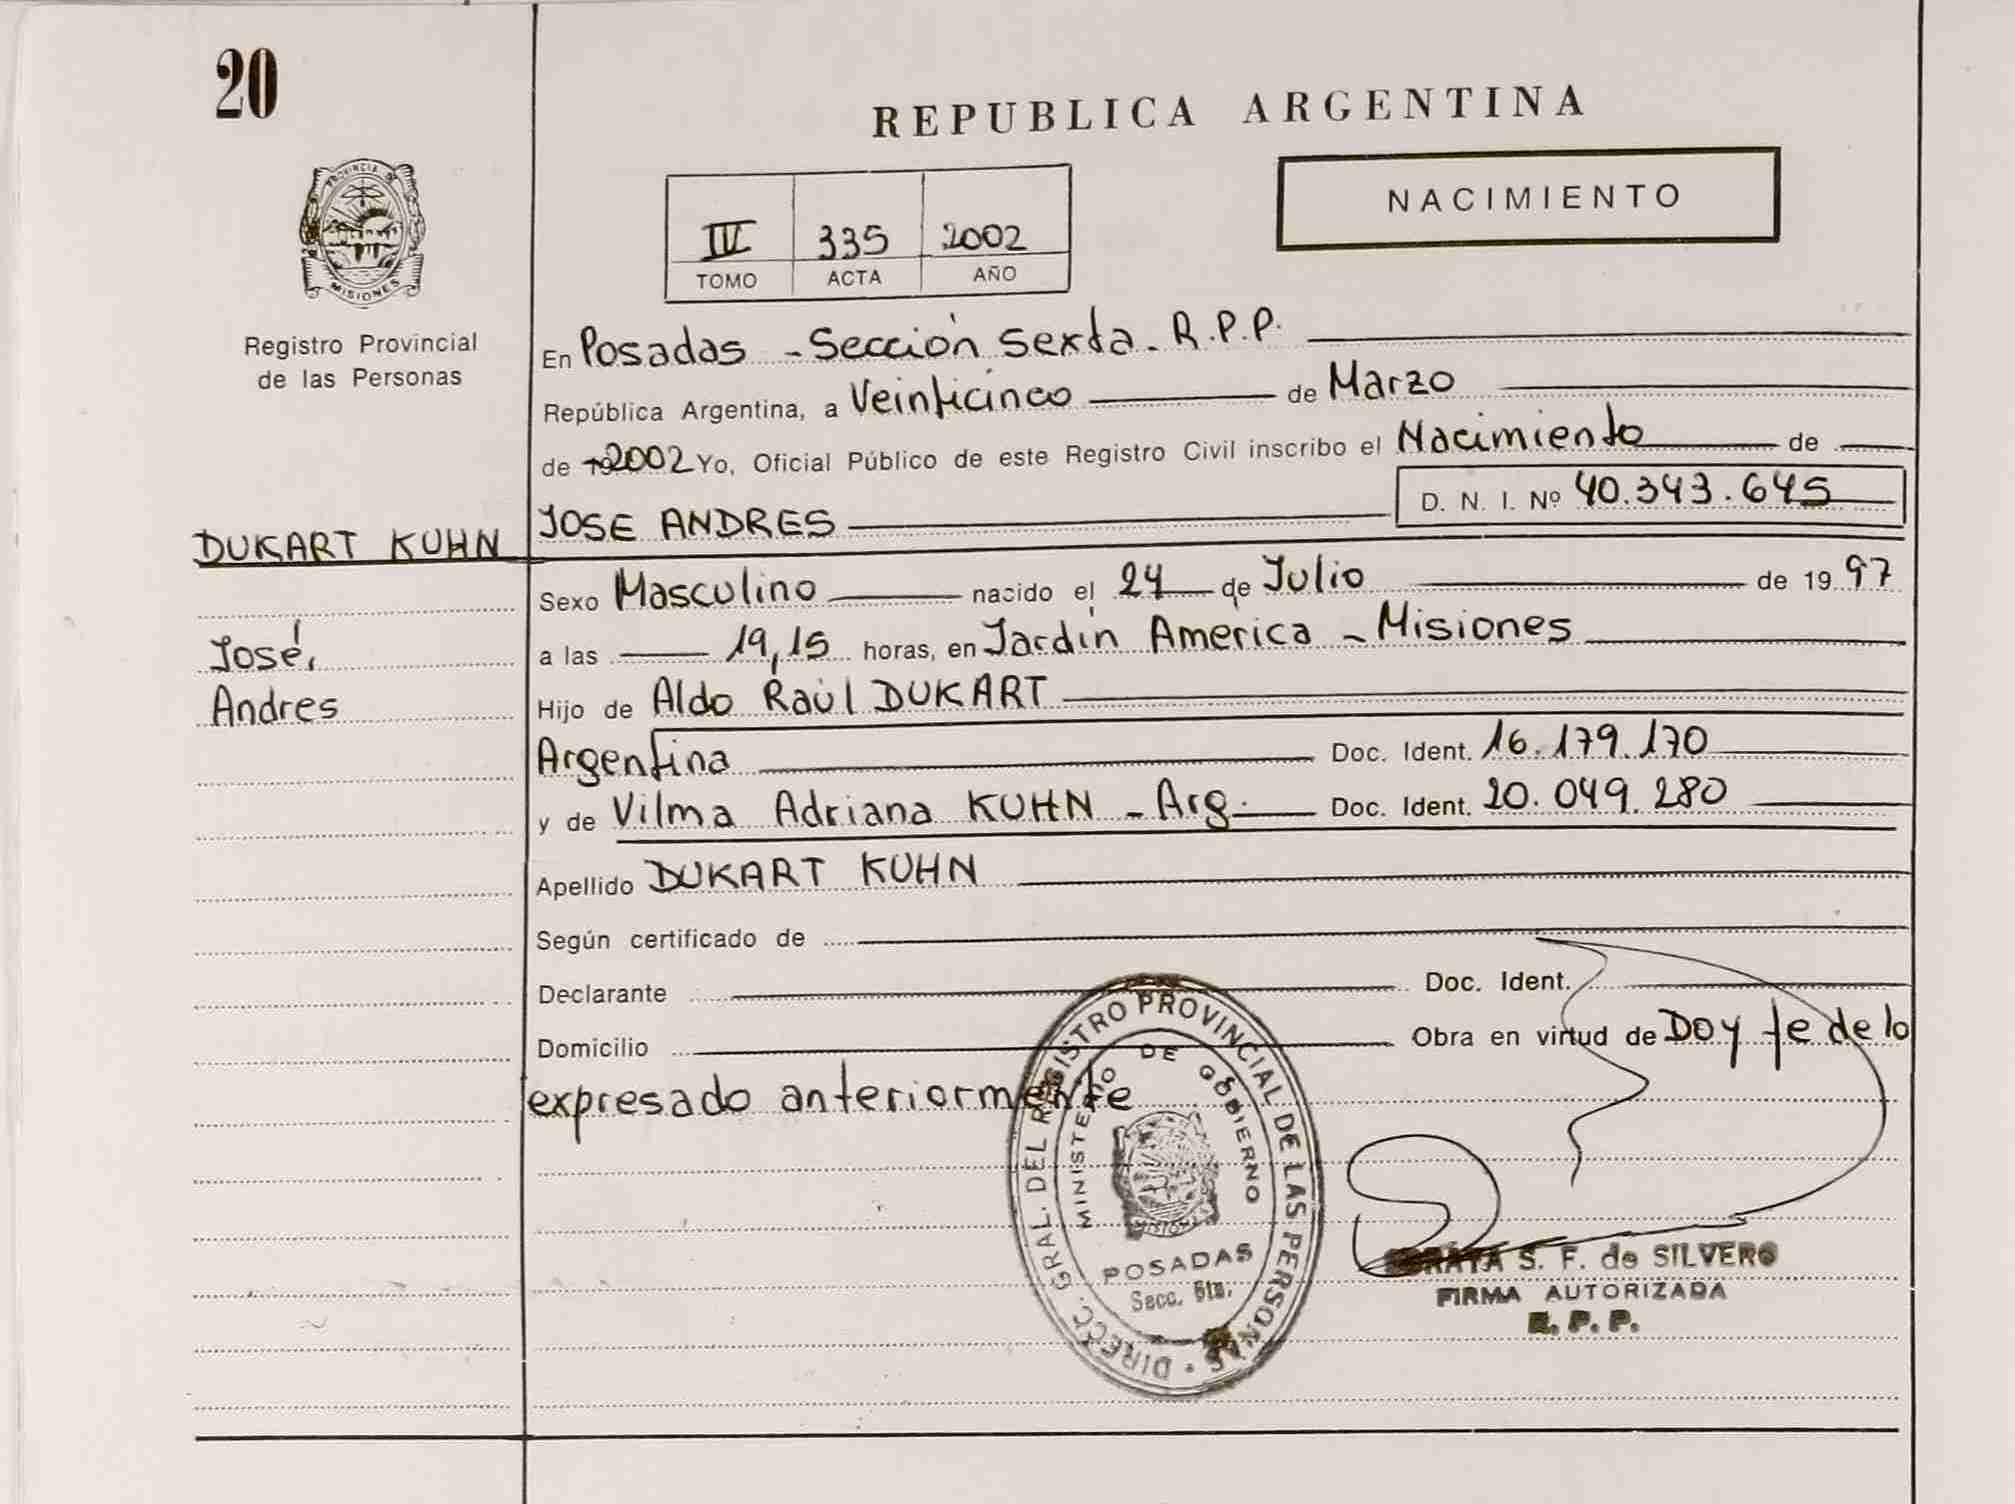 20
REPUBLICA ARGENTINA
PROVINCIA DE
MISIONES
NACIMIENTO
III 335 2002
TOMO ACTA AÑO
Registro Provincial
de las Personas
En Posadas - Sección Sexta - R.P.P.
República Argentina, a Veinticinco de Marzo
de 192002 Yo, Oficial Público de este Registro Civil inscribo el Nacimiento de
JOSE ANDRES D. N. I. Nº 40.343.645
DUKART KUHN
Sexo Masculino nacido el 24 de Julio de 1997
José,
a las 19,15 horas, en Jardín America - Misiones
Andres
Hijo de Aldo Raúl DUKART
Argentina Doc. Ident. 16.179.170
y de Vilma Adriana KUHN - Arg. Doc. Ident. 20.049.280
Apellido DUKART KUHN
Según certificado de
Declarante Doc. Ident.
Domicilio Obra en virtud de Doy fe de lo
expresado anteriormente
DIRECC. GRAL. DEL REGISTRO PROVINCIAL DE LAS PERSONAS
MINISTERIO DE GOBIERNO
MISIONES
POSADAS
Secc. 6ta.
S. F. de SILVERO
FIRMA AUTORIZADA
R. P. P.